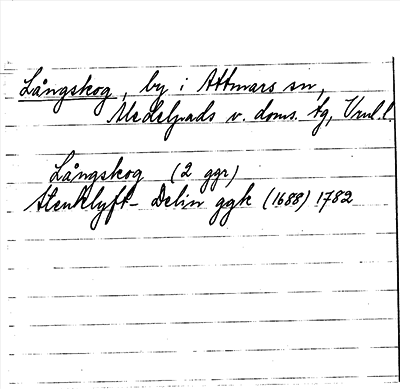 Långskog, by i Attmars sn,
Medelpads v. doms. tg, Vnl. l.
Långskog (2 ggr)
Stenklyft- Delin ggk (1688) 1782